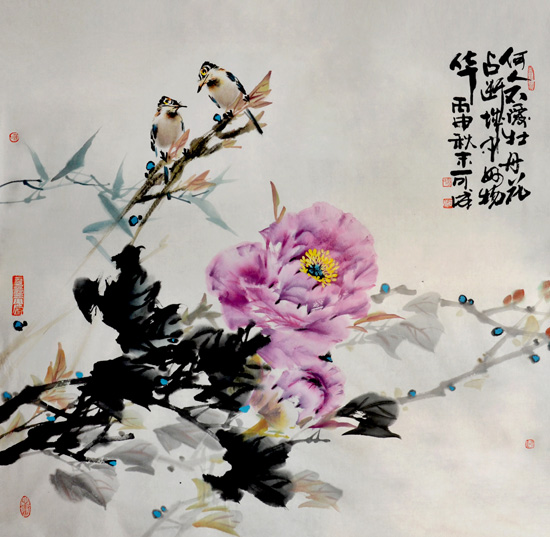 何人不愛牡丹花
占断城中好物
华
丙申秋末可